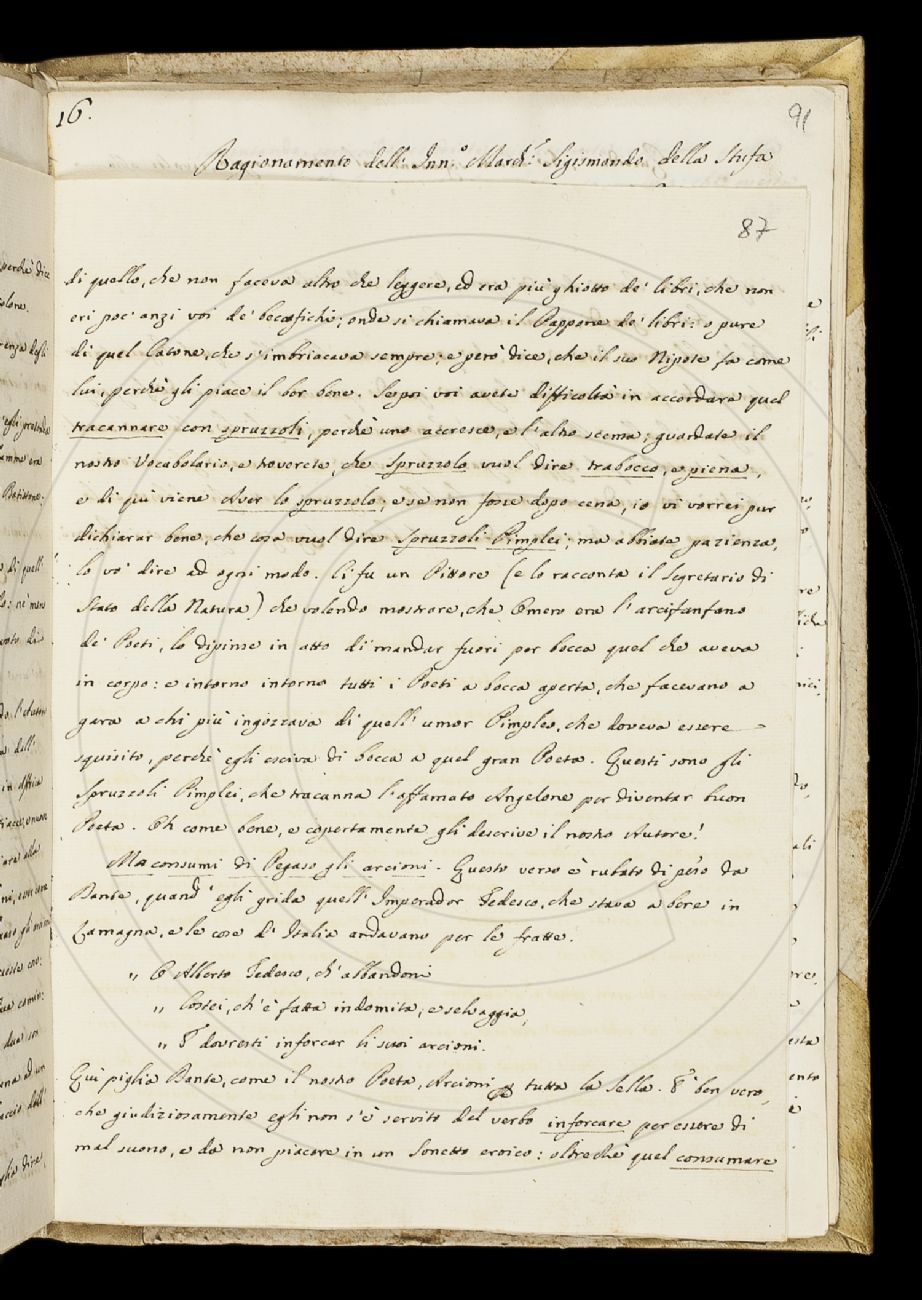 16.
91
Ragionamento dell' Inn.º March.e Sigismondo della Stufa
87
di quello, che non faceva altro che leggere, ed era più ghiotto de' libri, che non
eri poc' anzi voi de' becafichi; onde si chiamava il Pappone de' libri: o pure
di quel Catone, che s'imbriacava sempre; e però dice, che il suo Nipote fa come
lui, perchè gli piace il bor bene. Sepoi voi avete difficoltà in accordare quel
tracannare con spruzzoli, perchè uno accresce, e l'altro scema; guardate il
nostro Vocabolario, e troverete, che Spruzzolo vuol dire trabocco, e piena,
e di quì viene Aver lo spruzzolo; e se non fosse dopo cena, io vi vorrei pur
dichiarar bene, che cosa vuol dire Spruzzoli Pimplei; ma abbiate pazienza,
lo vo' dire ad ogni modo. Ci fu un Pittore (e lo racconta il Segretario di
Stato della Natura) che volendo mostrare, che Omero era l'arcifanfano
de' Poeti, lo dipinse in atto di mandar fuori per bocca quel che aveva
in corpo: e intorno intorno tutti i Poeti a bocca aperta, che facevano a
gara a chi più ingozzava di quell' umor Pimpleo, che doveva essere
squisito, perchè egli esciva di bocca a quel gran Poeta. Questi sono gli
Spruzzoli Pimplei, che tracanna l'affamato Angelone per diventar buon
Poeta. Oh come bene, e copertamente gli descrive il nostro Autore!
Ma consumi di Pegaso gli arcioni. Questo verso è rubato di peso da
Dante, quand' egli grida quell' Imperador Tedesco, che stava a bere in
Lamagna, e le cose d' Italia andavano per le fratte.
" O Alberto Tedesco, ch' abbandoni
" Costei, ch' è fatta indomita, e selvaggia,
" E dovresti inforcar li suoi arcioni.
Quì piglia Dante, come il nostro Poeta, Arcioni p tutta la Sella. È ben vero,
che giudiziosamente egli non s'è servito del verbo inforcare per essere di
mal suono, e da non piacere in un Sonetto eroico: oltrechè quel consumare